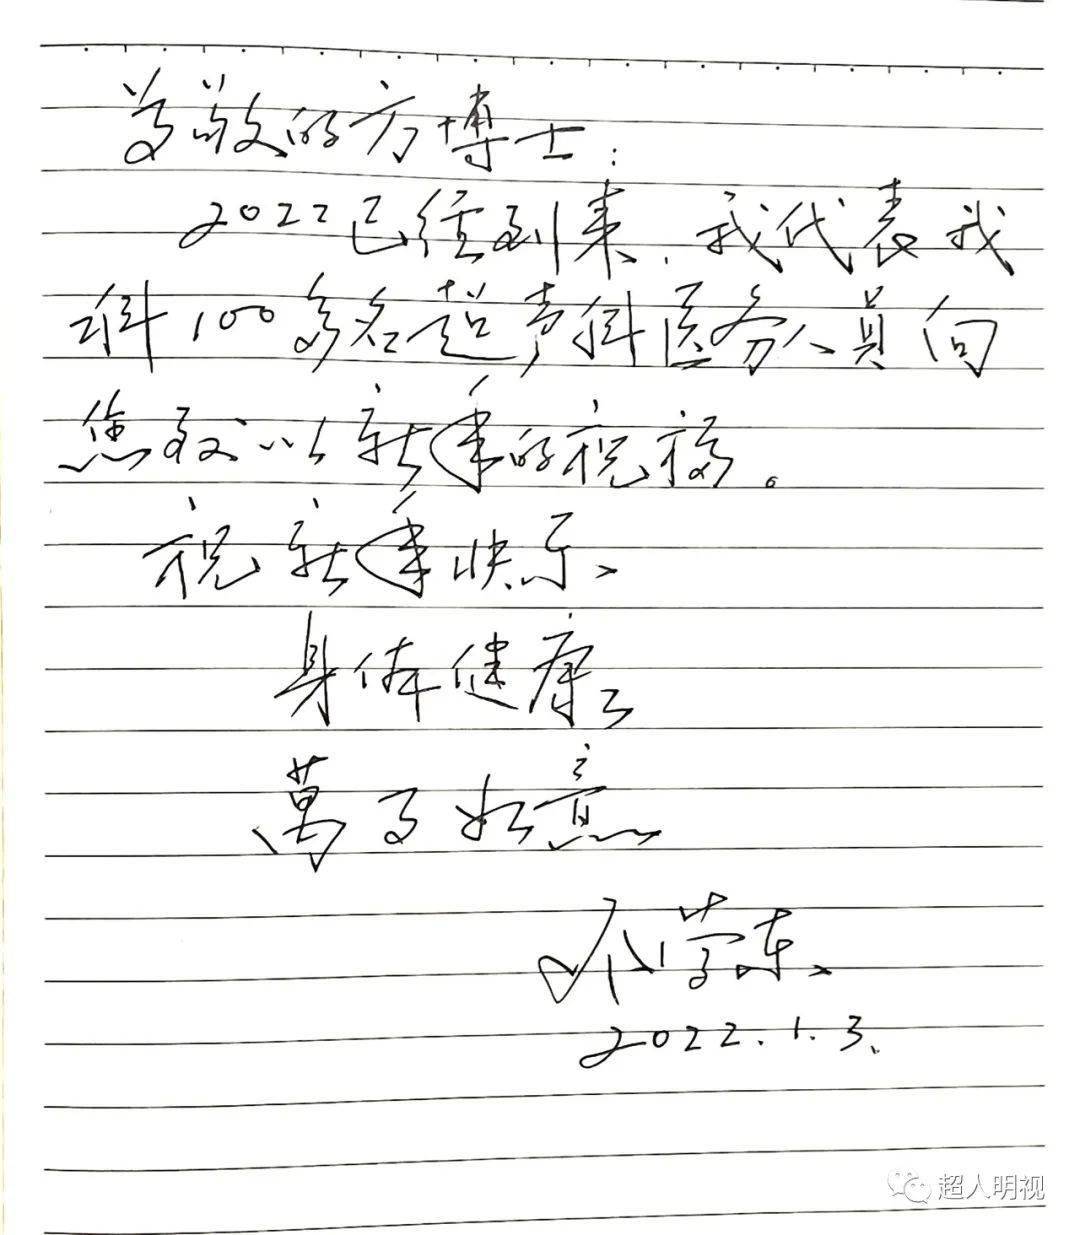 尊敬的方博士:
2022已经到来,我代表我
科100多名超声科医务人员向
您致以新年的祝福。
祝新年快乐、
身体健康、
萬事如意
学东
2022.1.3.
超人明视